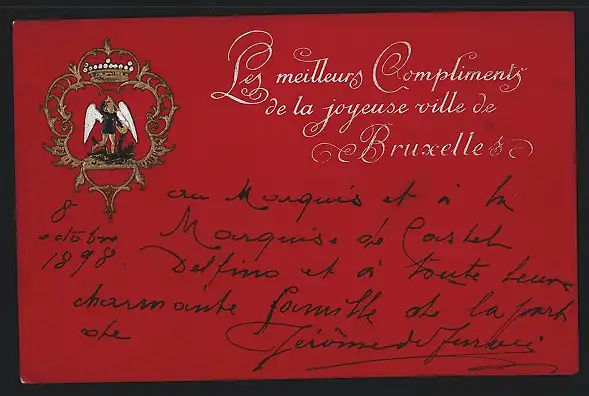 Les meilleurs Compliments
de la joyeuse ville de
Bruxelles
8
octobre
1898.
au Marquis et à la
Marquise de Castel
Delfino et à toute leur
charmante famille de la part
de Jérôme de